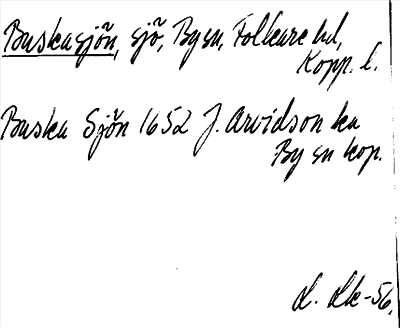 Buskasjön, sjö, By sn, Folkare hd,
Kopp. l.
Buska Sjön 1652 J. Arvidson ka
By sn kop.